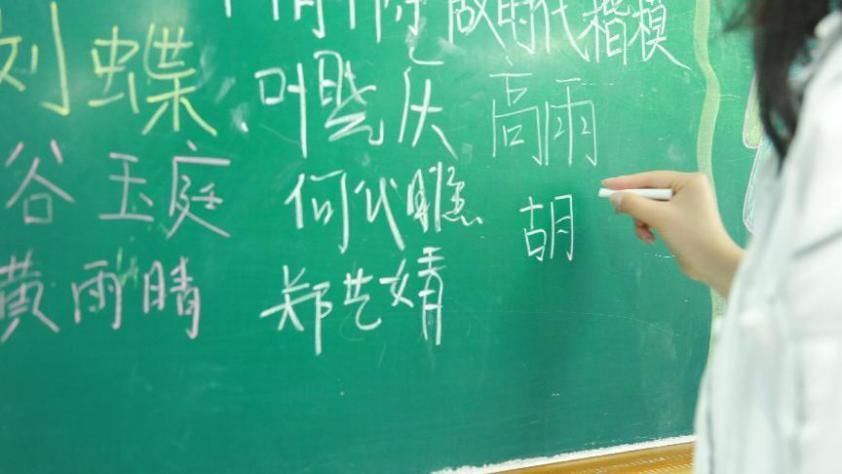 做时代楷模
刘蝶
叶
庆
高雨
谷玉庭
何代
胡
黄雨晴
郑艺婧